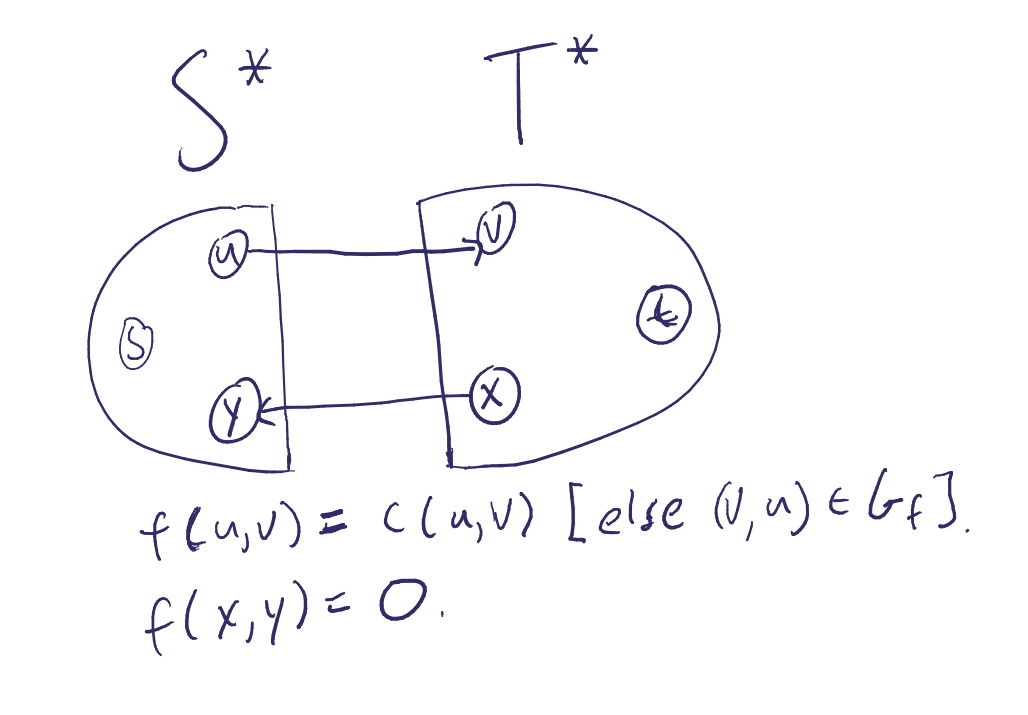 S* T*
u v
s t
y x
f(u,v) = c(u,v) [else (v,u) ∈ G_f].
f(x,y) = 0.